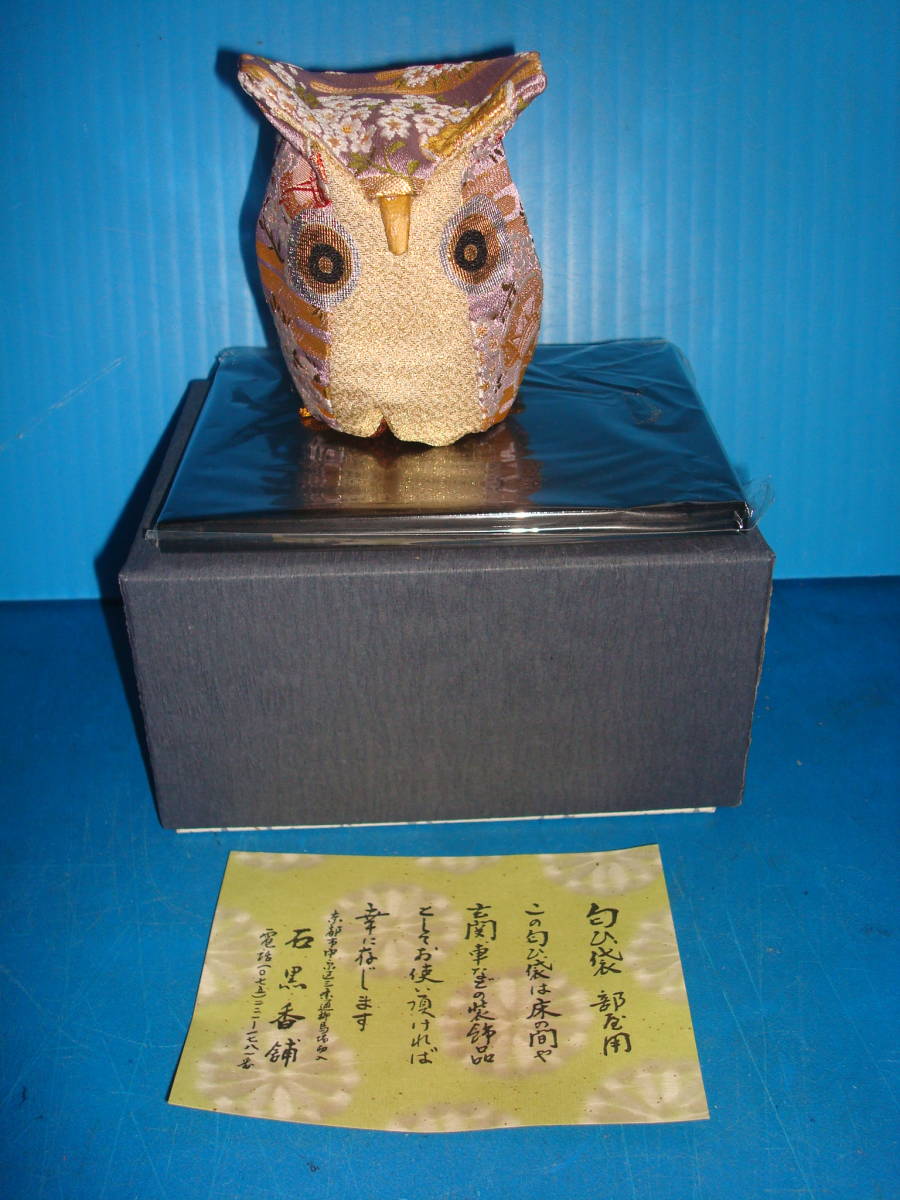 匂ひ袋 部屋用
この匂ひ袋は床の間や
玄関・車などの装飾品
としてお使い頂ければ
幸に存じます
京都市中京区三条通柳馬場西入
石黒香舗
電話(〇七五)二二一-一七八一番